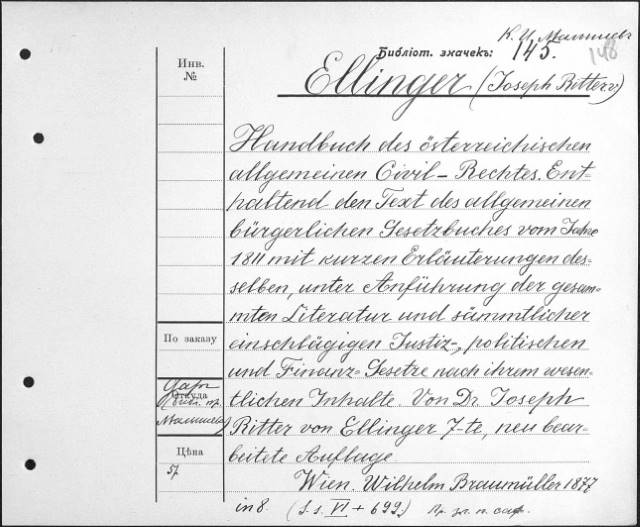 К. И. Малышев
Библіот. значекъ:
145.
148
Инв.
№
Ellinger (Joseph Ritter v)
Handbuch des österreichischen
allgemeinen Civil-Rechtes. Ent-
haltend den Text des allgemeinen
bürgerlichen Gesetzbuches vom Jahre
1811 mit kurzen Erläuterungen des-
selben, unter Anführung der gesam-
mten Literatur und sämmtlicher
По заказу
einschlägigen Justiz-, politischen
und Finanz-Gesetze nach ihrem wesen-
Откуда
tlichen Inhalte. Von Dr. Joseph
Малышева
Ritter von Ellinger 7-te, neu bear-
beitete Auflage
Цѣна
Wien. Wilhelm Braumüller 1877
in 8. (S.s. VI + 699.)